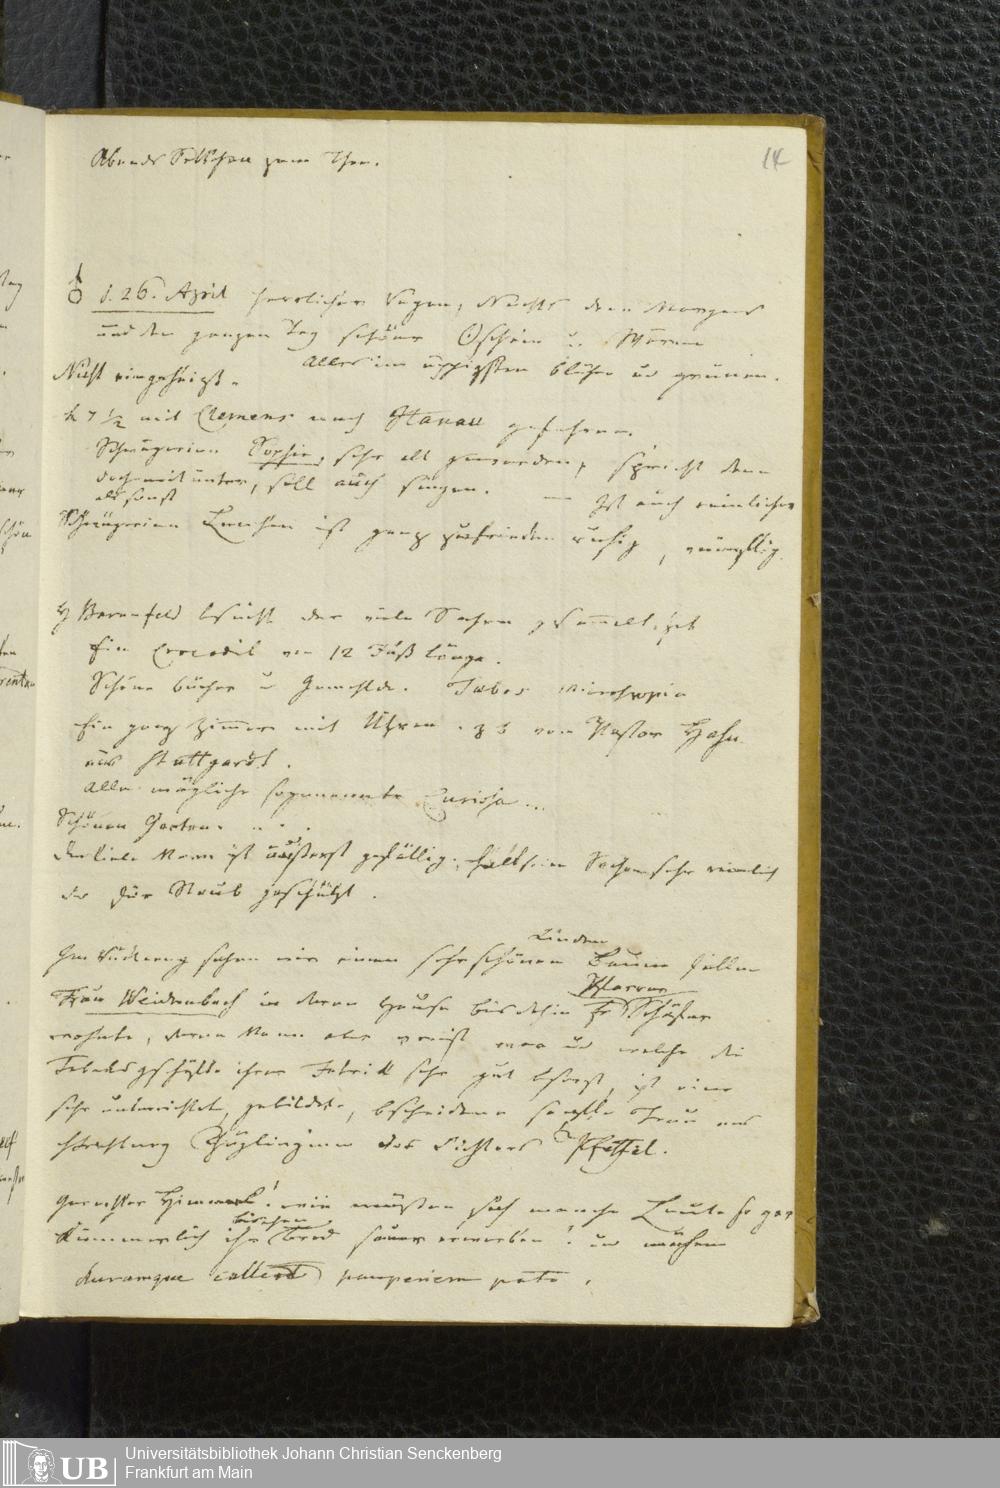 14
Abends zum Thee.
♂ d. 26. April herrlicher Regen, Nachts dem Morgens
und den ganzen Tag schöner ⊙schein u. Wärme
Alles im üppigsten blühen und grünen.
Nicht eingeheizt.
h 7 1/2 mit Clemens nach Hanau gefahren.
Schwägerin Sophie, sehr alt geworden, spricht denn
doch mitunter, soll auch singen. — Ist auch reinlicher
als sonst
Schwägerin Lenchen ist ganz zufrieden ruhig,
H Bernfeld besucht der viele Sachen gesammelt hat
Ein Crocodil von 12 Fuß Länge.
Schöne bücher u Gemählde.
Ein ganz Zimmer mit Uhren z b vom Pastor Hahn
aus Stuttgardt.
Alle mögliche sogenannte Curiosa ...
Schönen Garten. ...
Der liebe Mann ist äußerst gefällig, hält seine Sachen sehr reinlich
die für Staub geschützt.
Im Rückweg sahen wir einen sehr schönen Baum fällen
Linden
Pfarrer
Frau Weidenbach in deren Hause bis dahin H Schäfer
wohnte, deren Mann aber verreist war und welche die
Tabaksgeschäfte ihrer Fabrik sehr gut besorgt, ist eine
sehr unterrichtete, gebildete, bescheidene sanfte Frau
Zöglinginn des Dichters Pfeffel.
Gerechter Himmel! wie müßen sich manche Leute so gar
bischen
kümmerlich ihr Brod sauer erwerben! und
duramque callent pauperiem pati.
Universitätsbibliothek Johann Christian Senckenberg
Frankfurt am Main
UB